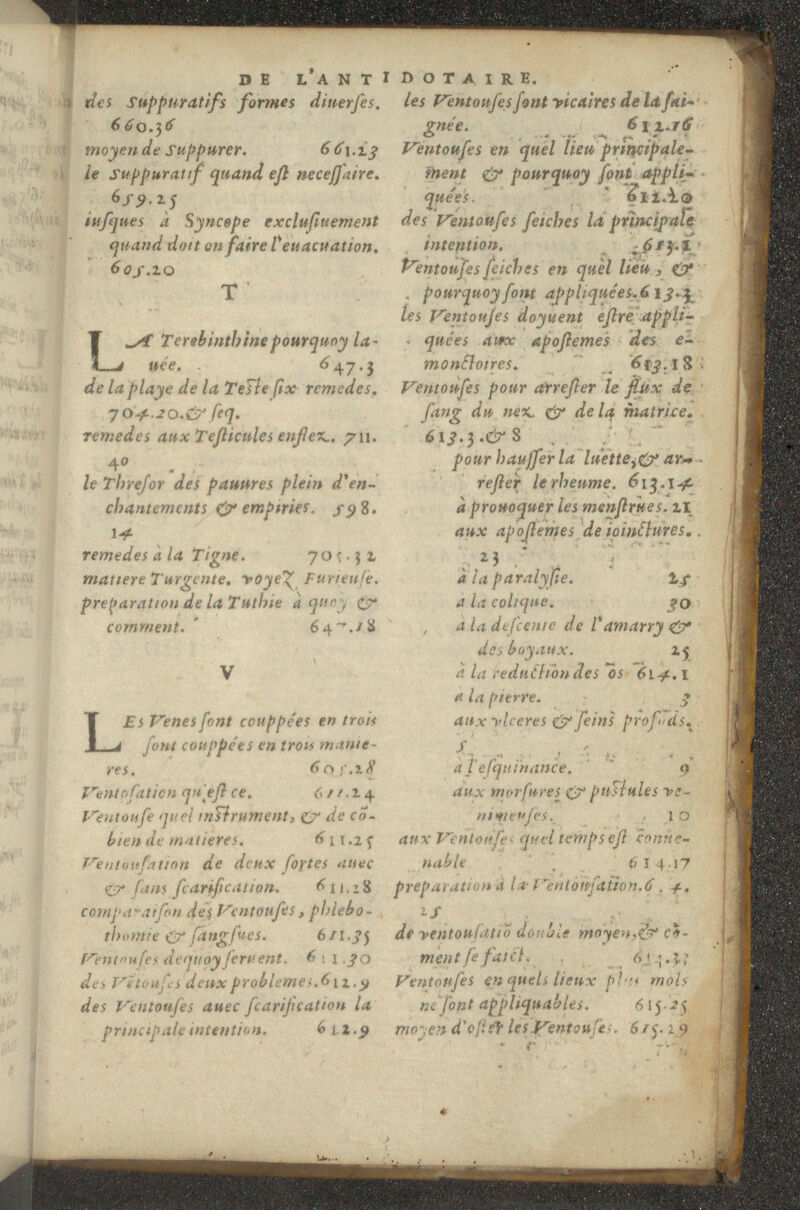 DE L'ANTIDOTAIRE.
des Suppuratifs formes diuerses.
660.36
moyen de Suppurer. 661.13
le Suppuratif quand eſt neceſſaire.
659.25
iuſques à Syncope excluſiuement
quand doit on faire l'euacuation.
605.20
T
LA Terebinthine pourquoy la-
uée. 647.3
de la playe de la Teſte ſix remedes.
704.20.& ſeq.
remedes aux Teſticules enflez. 711.
40
le Threſor des pauures plein d'en-
chantements & empiries. 598.
14
remedes à la Tigne. 705.32
matiere Turgente. voyeZ Furieuſe.
preparation de la Tuthie à quoy &
comment. 647.18
V
LEs Venes ſont couppées en trois
ſont couppées en trois manie-
res. 605.28
Ventoſation qu'eſt ce. 611.24
Ventouſe quel inſtrument, & de cō-
bien de matieres. 611.25
Ventouſation de deux ſortes auec
& ſans ſcarification. 611.28
comparaiſon des Ventouſes, phlebo-
thomie & ſangſues. 611.35
Ventouſes dequoy ſeruent. 611.30
des Vētouſes deux problemes. 612.9
des Ventouſes auec ſcarification la
principale intention. 612.9
les Ventouſes ſont vicaires de la ſai-
gnée. 612.16
Ventouſes en quel lieu principale-
ment & pourquoy ſont appli-
quées. 612.20
des Ventouſes ſeiches la principale
intention. 613.1
Ventouſes ſeiches en quel lieu, &
pourquoy ſont appliquées. 613.3
les Ventouſes doyuent eſtre appli-
quées aux apoſtemes des e-
monctoires. 613.18
Ventouſes pour arreſter le flux de
ſang du nez & de la matrice.
613.3.& 8
pour hauſſer la luette, & ar-
reſter le rheume. 613.14
à prouoquer les menſtrues. 21
aux apoſtemes de ioinctures.
23
à la paralyſie. 25
a la colique. 30
à la deſcente de l'amarry &
des boyaux. 25
à la reduction des os 614.1
a la pierre. 3
aux vlceres & ſeins profōds.
5
a l'eſquinance. 9
aux morſures & puſtules ve-
nimeuſes. 10
aux Ventouſes quel temps eſt conue-
nable 614.17
preparation à la Ventouſation. 6 . 4.
25
de ventouſatiō double moyen, & cō-
ment ſe faict. 614.
Ventouſes en quels lieux plus mols
ne ſont appliquables. 615.25
moyen d'oſter les Ventouſes. 615.29